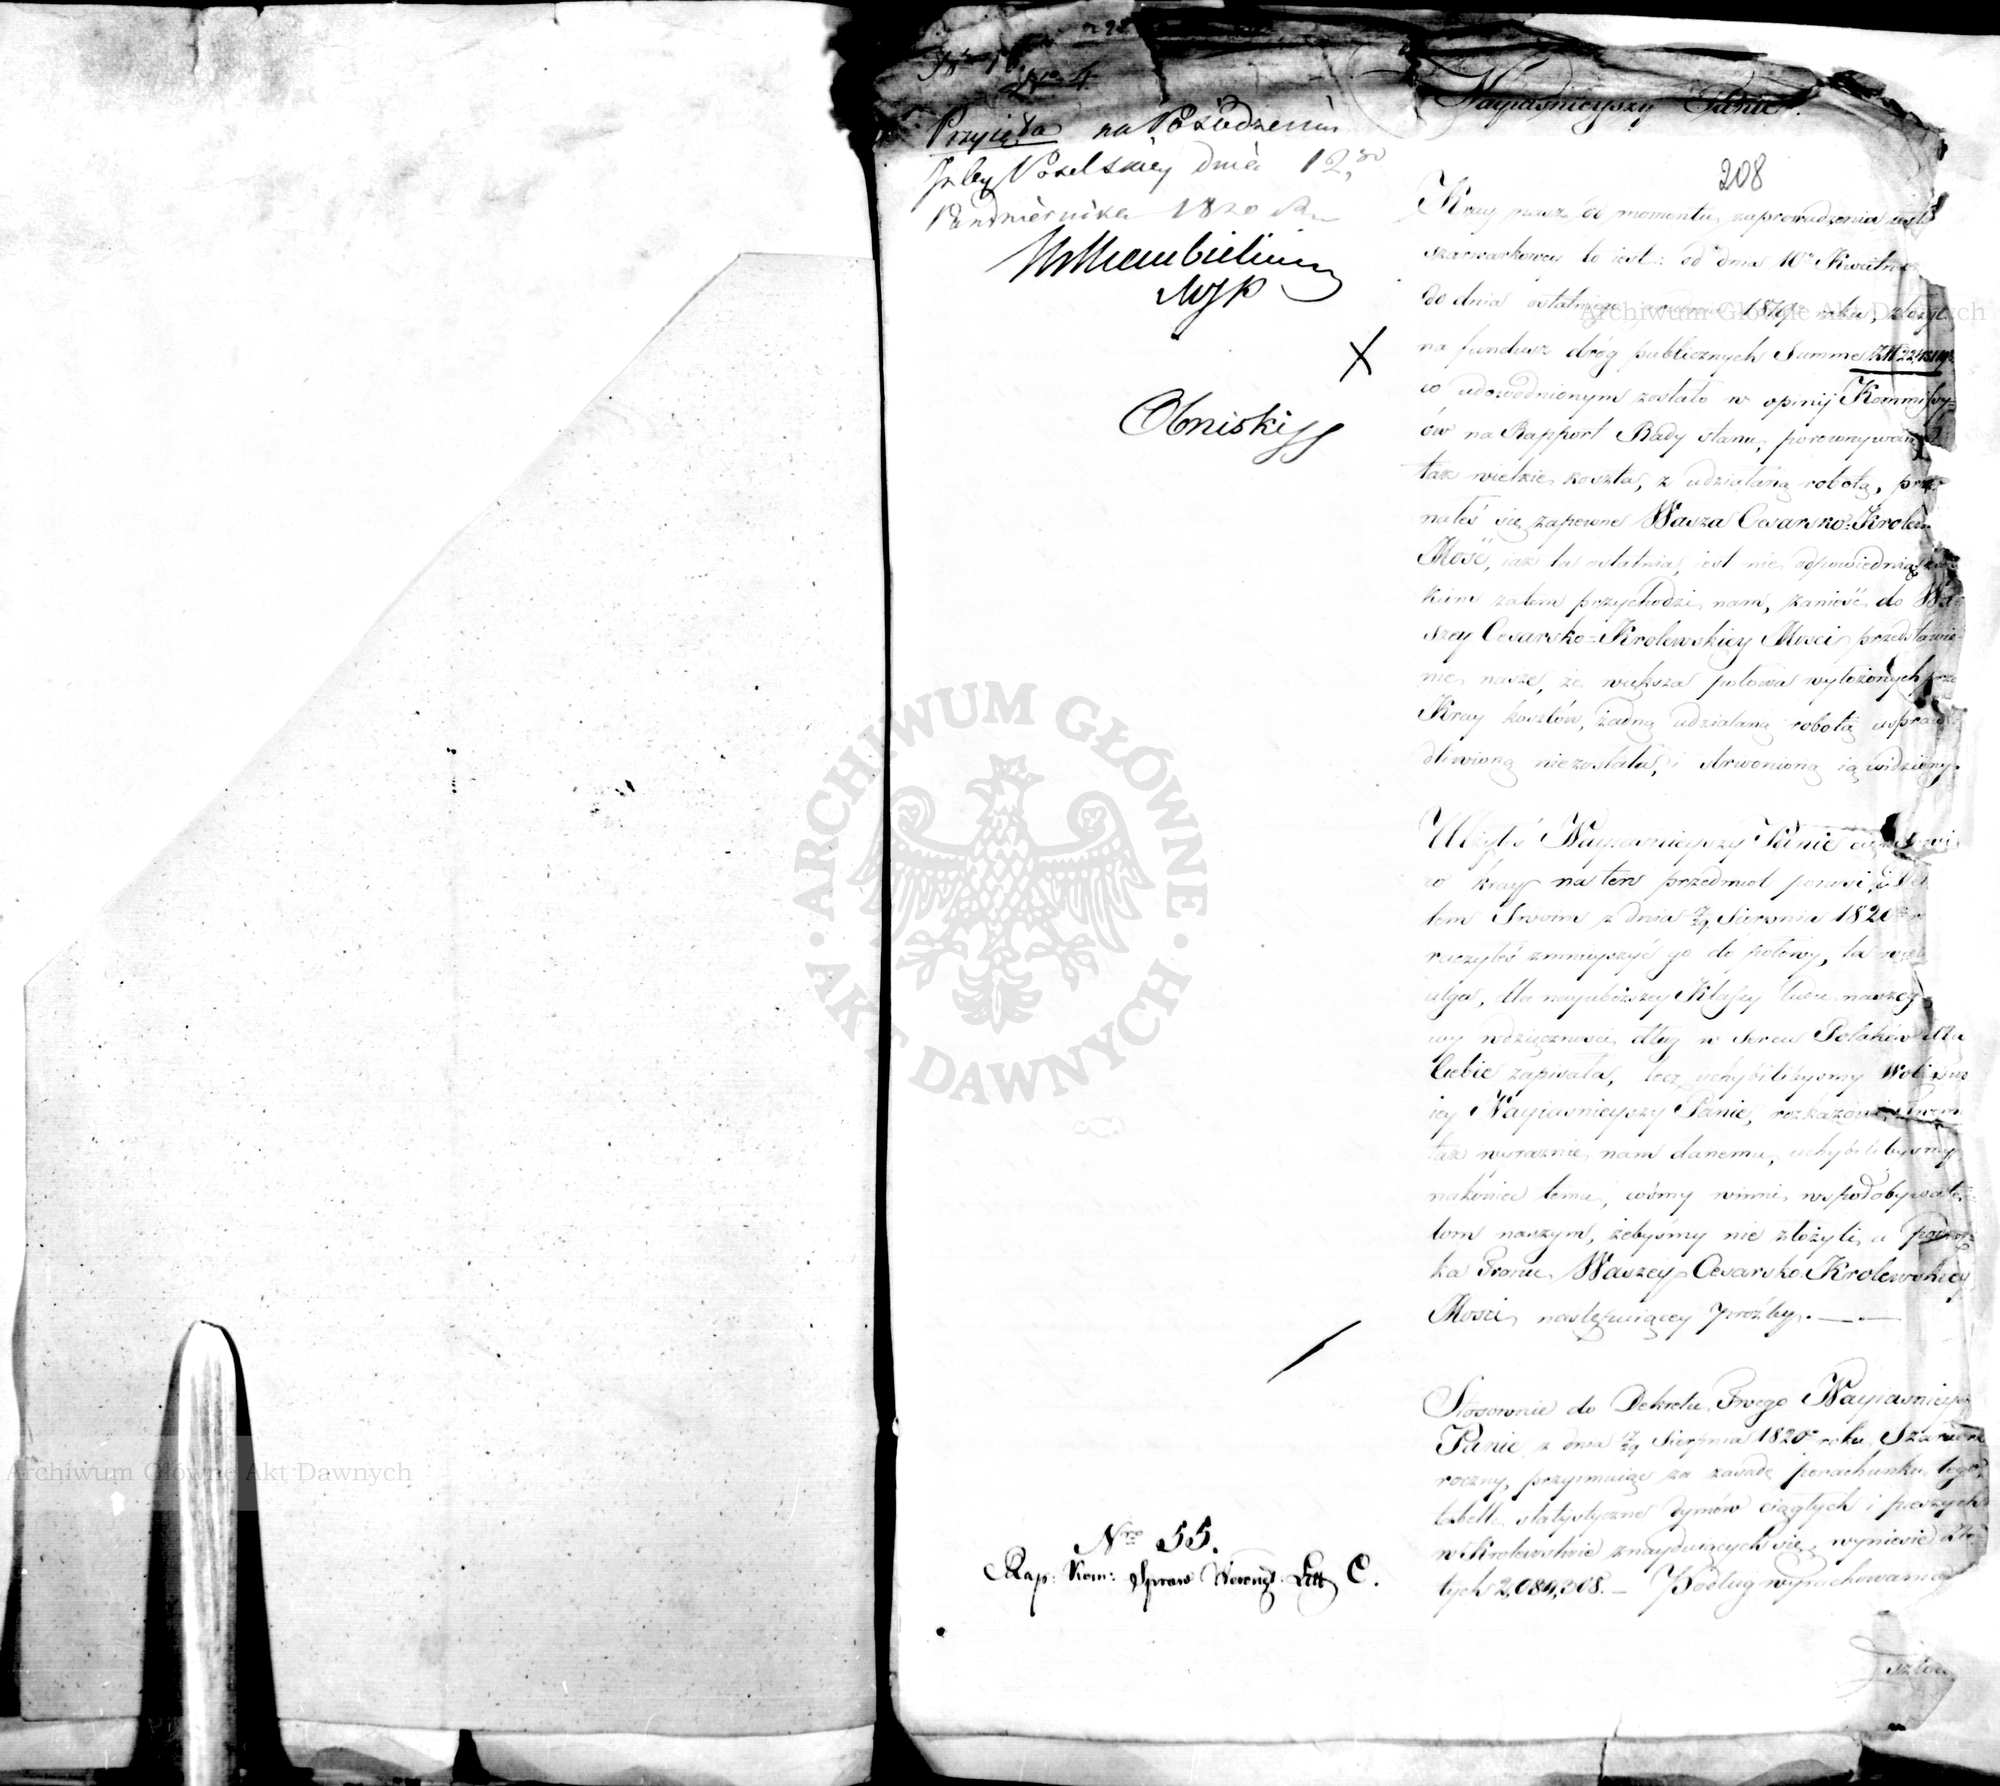 Przyięta na Posiedzeniu
Izby Poselskiey dnia 12go
Pazdziernika 1820 R.
Obniski
Nro 55.
Rap: Kom: Spraw Wewnęt: Litt C.
Nayiasnieyszy Panie.
208
Kray nasz od momentu zaprowadzenia
szarwarkowey to iest: od dnia 10o Kwietnia
do dnia ostatniego 1819o roku, złożył
na fundusz dróg publicznych Summę
co udowodnionym zostało w opinij Kommissy-
ów na Rapport Rady stanu, porownywaiąc
tak wielkie koszta, z udziałaną robotą, prze-
nałeś się zapewne Wasza Cesarsko-Krolew
Mość, iak ta ostatnia, iest nie odpowiednią
kim zatem przychodzi nam, zanieść do Wa-
szey Cesarsko=Krolewskiey Mosci przedstawie-
nie nasze, że większa połowa wyłożonych prze
Kray kosztów, żadną udziałaną robotą uspraw
dliwioną niezostała, i strwonioną ią widziemy.
Uznałeś Nayiasnieyszy Panie
co kray na ten przedmiot ponosi i
tem Swoim z dnia 17/29 Sierpnia 1820o r
raczyłeś zmnieyszyć go do połowy, ta
ulga, dla nayuboższey Klassy ludu naszego
wdzięczności dług w sercu Polaków dla
Ciebie zapisała, lecz uchybilibysmy Woli
iey Nayiasnieyszy Panie, rozkazowi Twem
tak wyraznie nam danemu, uchybilibysmy
nakoniec temu, cośmy winni, wspołobywate-
lom naszym, żebyśmy nie złożyli u
ka Tronu Waszey Cesarsko Krolewskiey
Mosci następuiącey proźby.
Stosownie do Dekretu Twego Nayiasnieyszy
Panie z dnia 17/29 Sierpnia 1820o roku Szarwark
roczny, przyimuiąc za zasadę porachunku tego
tabelle statystyczne dymów ciągłych i pieszych
w Krolewstwie znayduiących się, wyniesie Zło
tych 2,084,308. — Podług wyrachowania